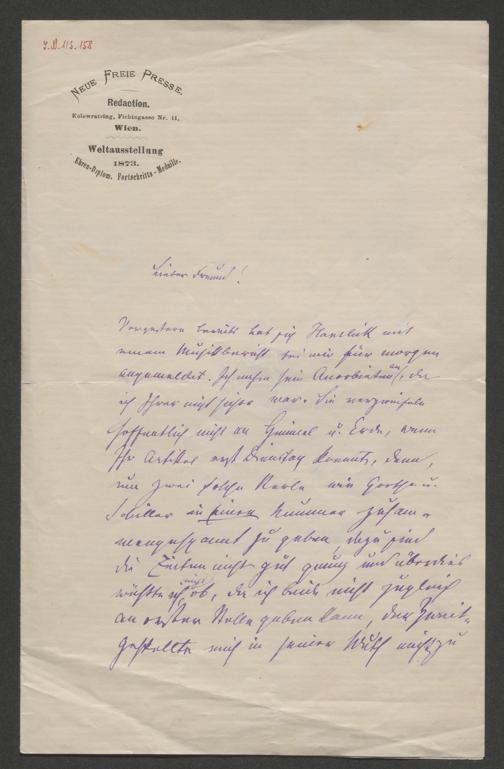 I.N. 115.158
NEUE FREIE PRESSE.
Redaction.
Kolowratring, Fichtegasse Nr. 11,
Wien.
Weltausstellung
1873.
Ehren-Diplom. Fortschritts-Medaille.
Lieber Freund!
Vorgestern bereits hat sich Hanslick mit
einem Musikbericht bei mir für morgen
angemeldet. Ich nahm sein Anerbieten an, da
ich Ihrer nicht sicher war. Sie verzweifeln
hoffentlich nicht an Himmel u. Erde, wenn
Ihr Artikel erst Dienstag kommt, denn,
um zwei solche Kerle wie Goethe u.
Schiller in einer Nummer zusam-
mengespannt zu geben, dazu sind
die Zeiten nicht gut genug und überdies
wüßte ich nicht, ob, da ich beide nicht zugleich
an erster Stelle geben kann, der Zweit-
gestellte mich in seiner Wuth nicht zu